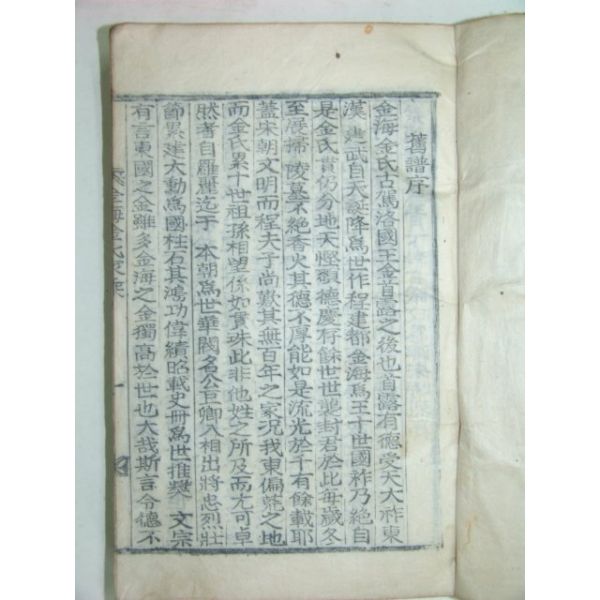 舊譜序
金海金氏古駕洛國王金首露之後也首露有德受天大祚東
漢建武自天誕降爲世作程建都金海爲王十世國祚乃絶自
是金氏貫仍分地天慳碩德慶存餘世世襲封君於此每歲冬
至展掃陵墓不絶香火其德不厚能如是流光於千有餘載耶
蓋宋朝文明而程夫子尚歎其無百年之家況我東偏荒之地
而金氏累十世祖孫相望係如貫珠此非他姓之所及而尤可卓
然者自羅麗迄于 本朝爲世華閥名公巨卿入相出將忠烈壯
節累建大勳爲國柱石其鴻功偉績昭載史冊爲世推獎 文宗
有言東國之金雖多金海之金獨高於世也大哉斯言令德不
金海金氏
一